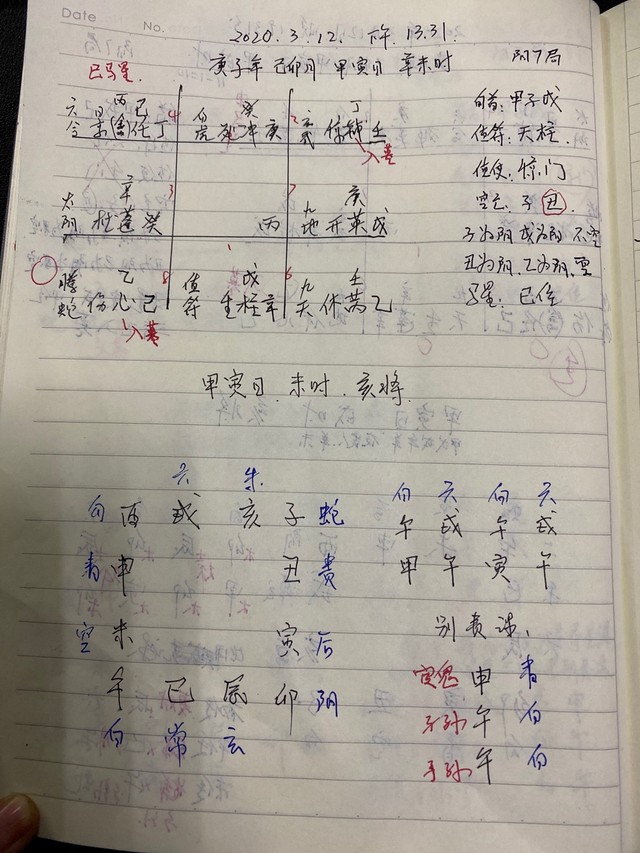 Date
No.
2020.3.12. 下午. 13.31.
庚子年 己卯月 甲寅日 辛未时 阳7局
巳马星.
丙己 癸 丁
六合 景 任丁 4 白虎 死冲庚 2 玄武 惊辅壬
入墓
旬首: 甲子戊
值符: 天柱
值使: 惊门
空亡: 子 丑.
子为阳 戊为阳 不空
丑为阴. 乙为阴. 空
马星: 巳位
辛 3 7 庚
太阴 杜蓬癸 丙 九地 开英戊
乙 8 1 戊 6 壬
腾蛇 伤心己 值符 生柱辛 九天 休芮乙
入墓
甲寅日. 未时. 亥将.
六 朱
勾 酉 戌 亥 子 蛇
青 申 丑 贵
空 未 寅 后
午 巳 辰 卯 阴
白 常 玄
白 六 白 六
午 戌 午 戌
甲 午 寅 午
别责课.
官鬼 申 青
子孙 午 白
子孙 午 白